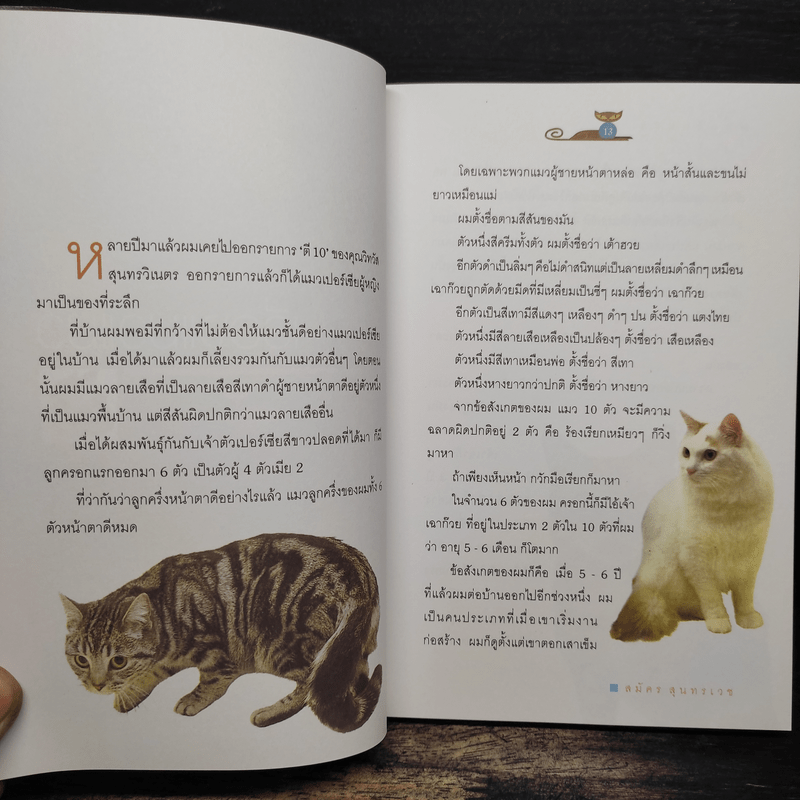 หลายปีมาแล้วผมเคยไปออกรายการ ‘ตี 10’ ของคุณวิทวัส
สุนทรวิเนตร ออกรายการแล้วก็ได้แมวเปอร์เซียผู้หญิง
มาเป็นของที่ระลึก
ที่บ้านผมพอมีที่กว้างที่ไม่ต้องให้แมวชั้นดีอย่างแมวเปอร์เซีย
อยู่ในบ้าน เมื่อได้มาแล้วผมก็เลี้ยงรวมกันกับแมวตัวอื่นๆ โดยตอน
นั้นผมมีแมวลายเสือที่เป็นลายเสือสีเทาดำผู้ชายหน้าตาดีอยู่ตัวหนึ่ง
ที่เป็นแมวพื้นบ้าน แต่สีสันผิดปกติกว่าแมวลายเสืออื่น
เมื่อได้ผสมพันธุ์กันกับเจ้าตัวเปอร์เซียสีขาวปลอดที่ได้มา ก็มี
ลูกครอกแรกออกมา 6 ตัว เป็นตัวผู้ 4 ตัวเมีย 2
ที่ว่ากันว่าลูกครึ่งหน้าตาดีอย่างไรแล้ว แมวลูกครึ่งของผมทั้ง 6
ตัวหน้าตาดีหมด
13
โดยเฉพาะพวกแมวผู้ชายหน้าตาหล่อ คือ หน้าสั้นและขนไม่
ยาวเหมือนแม่
ผมตั้งชื่อตามสีสันของมัน
ตัวหนึ่งสีครีมทั้งตัว ผมตั้งชื่อว่า เต้าฮวย
อีกตัวดำเป็นลิ่มๆ คือไม่ดำสนิทแต่เป็นลายเหลี่ยมดำลึกๆ เหมือน
เฉาก๊วยถูกตัดด้วยมีดที่มีเหลี่ยมเป็นซี่ๆ ผมตั้งชื่อว่า เฉาก๊วย
อีกตัวเป็นสีเทามีสีแดงๆ เหลืองๆ ดำๆ ปน ตั้งชื่อว่า แตงไทย
ตัวหนึ่งมีสีลายเสือเหลืองเป็นปล้องๆ ตั้งชื่อว่า เสือเหลือง
ตัวหนึ่งมีสีเทาเหมือนพ่อ ตั้งชื่อว่า สีเทา
ตัวหนึ่งหางยาวกว่าปกติ ตั้งชื่อว่า หางยาว
จากข้อสังเกตของผม แมว 10 ตัว จะมีความ
ฉลาดผิดปกติอยู่ 2 ตัว คือ ร้องเรียกเหมียวๆ ก็วิ่ง
มาหา
ถ้าเพียงเห็นหน้า กวักมือเรียกก็มาหา
ในจำนวน 6 ตัวของผม ครอกนี้ก็มีไอ้เจ้า
เฉาก๊วย ที่อยู่ในประเภท 2 ตัวใน 10 ตัวที่ผม
ว่า อายุ 5 - 6 เดือน ก็โตมาก
ข้อสังเกตของผมก็คือ เมื่อ 5 - 6 ปี
ที่แล้วผมต่อบ้านออกไปอีกช่วงหนึ่ง ผม
เป็นคนประเภทที่เมื่อเขาเริ่มงาน
ก่อสร้าง ผมก็ดูตั้งแต่เขาตอกเสาเข็ม
สมัคร สุนทรเวช